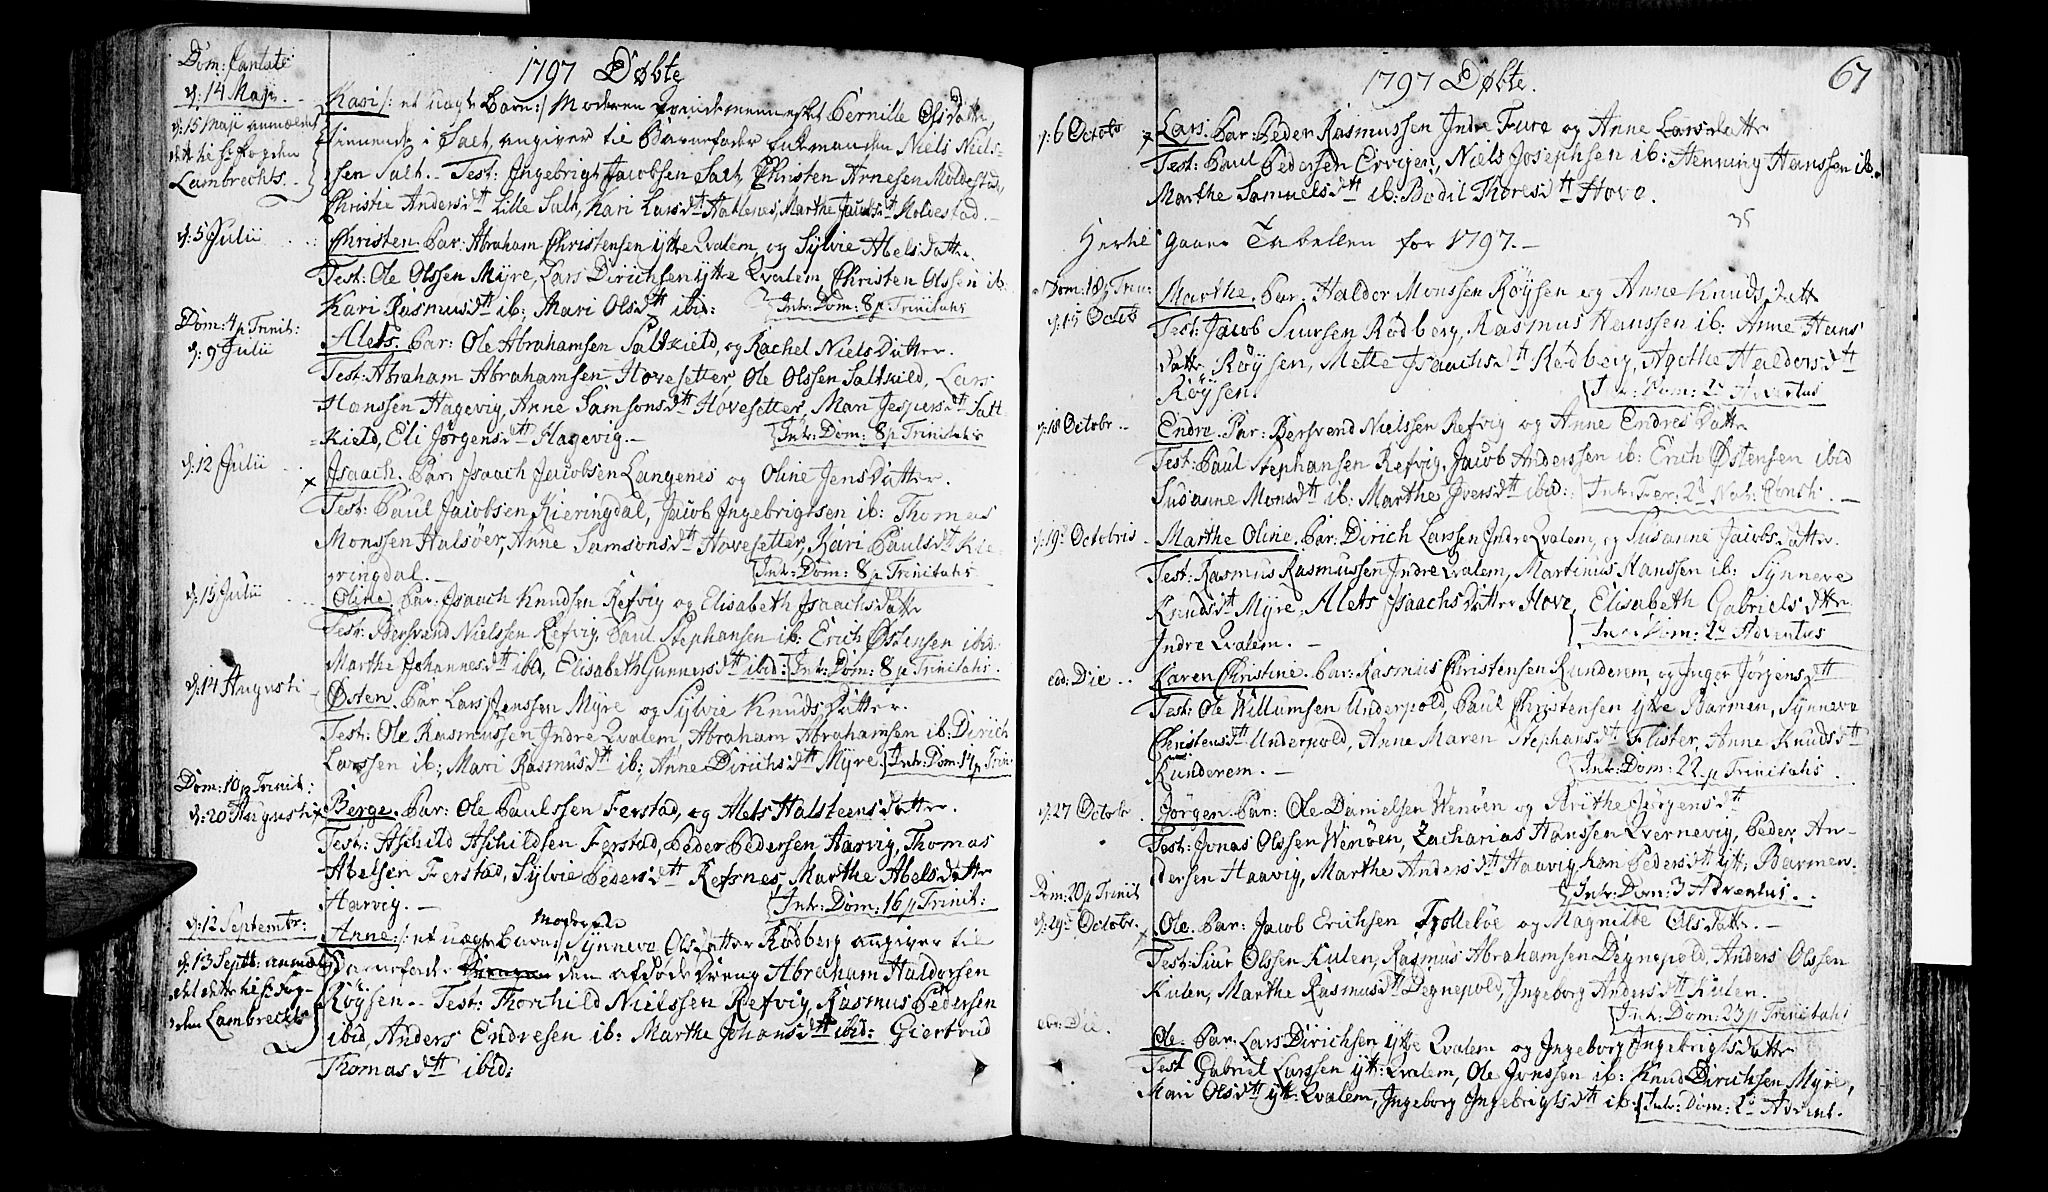 1797 Døbte
Dom: Cantate
d: 14 Maji
Kari /: et uægte Barn :/ Moderen Qvindemennesket Pernille OlsDatter,
d: 15 Maji anmældet
tienende i Salt, angiver til Barnefader Niels Niels-
dette hr Fogden
sen Salt. Test: Ingebrigt Jacobsen Salt, Christen Arnesen Moldestad,
Lambrechts.
Christie Andersdtt Lille Salt, Kari Larsdtt Hatlenes, Marthe Jacobsdtt Moldestad.
d: 5 Julii
Christen. Par: Abraham Christensen ytte Qvalem, og Sylvie AbelsDatter.
Test: Ole Olssen Myre, Lars Dirichsen ytte Qvalem, Christen Olssen ib:
Kari Rasmusdtt ib: Mari Olsdtt ibid: Intr: Dom: 8 p Trinitatis
Dom: 4 p Trinit:
d: 9 Julii
Alets. Par: Ole Abrahamsen Saltkield, og Rachel NielsDatter.
Test: Abraham Abrahamsen Hovesetter, Ole Olssen Saltkield, Lars
Hanssen Hagevig, Anne Samsonsdtt Hovesetter, Mari Jespersdtt Salt-
kield, Eli Jørgensdtt Hagevig. Intr: Dom: 8 p Trinitatis
d: 12 Julii
Isaach. Par: Isaach Jacobsen Langenes og Oline JensDatter.
Test: Paul Jacobsen Kieringdal, Jacob Ingebrigtsen ib: Thomas
Monssen Halsöer, Anne Samsonsdtt Hovesetter, Kari Paulsdtt Kie-
ringdal. Intr: Dom: 8 p Trinitatis
d: 15 Julii
Oline. Par: Isaach Knudsen Refvig og Elisabeth IsaachsDatter
Test: Bersvend Nielssen Refvig, Paul Stephansen ib: Erich Östensen ibid
Marthe Johannesdtt ibid, Elisabeth Gunnersdtt ibid: Intr: Dom: 8 p Trinitatis.
d: 14 Augusti
Østen. Par Lars Jenssen Myre og Sylvie KnudsDatter.
Test: Ole Rasmussen Indre Qvalem, Abraham Abrahamsen ib: Dirich
Larssen ib: Mari Rasmusdtt ib: Anne Dirichsdtt Myre. Intr: Dom: 14 p Trin:
Dom: 10 p Trinit:
d: 20 Augusti
Berge. Par: Ole Paulssen Ferstad, og Alets HalsteensDatter.
Test: Aschild Aschildsen Ferstad, Peder Pedersen Aarvig, Thomas
Abelsen Ferstad, Sylvie Pedersdtt Refsnes, Marthe AbelsDatter
Harvig. Intr: Dom: 16 p Trinit:
d: 12 Septembr:
Moderen
Anne /: et uægte barn :/ Synneve OlsDatter Rødberg angiver til
d: 13 Septb: anmel-
Barnefader den afdøde Dreng Abraham Haldorsen
det dette hr Fog-
Röysen. Test: Thorchild Nielssen Refvig, Rasmus Pedersen
den Lambrechts
ibid, Anders Endresen ib: Marthe Johansdtt ibid: Giertrud
Thomasdtt ibid:
1797 Døbte.
67
d: 6 Octobr
Lars. Par: Peder Rasmussen Indre Fure og Anne LarsDatter
Test: Paul Pedersen Ervigen, Niels Josephsen ib: Henning Hanssen ib.
Marthe Samuelsdtt ib: Bodil Thoresdtt Hove.
Hertil gaaer Tabellen for 1797.
Dom: 18 p Trin:
d: 15 Octob
Marthe. Par. Haldor Monssen Röysen og Anne KnudsDatt
Test: Jacob Siursen Rødberg, Rasmus Hanssen ib: Anne Hans
Datter Röysen, Mette Isaachsdtt Rødberg, Agethe Haldorsdtt
Röysen. Intr: Dom: 1 Adventus
d: 18 Octobr
Endre. Par: Bersvend Nielssen Refvig og Anne EndresDattr
Test: Paul Stephansen Refvig, Jacob Anderssen ib: Erich Østensen ibid
Susanne Monsdtt ib: Marthe Iversdtt ibid: Intr: Fer: 2 Nat: Christi.
d: 19 Octobris
Marthe Oline. Par: Dirich Larssen Indre Qvalem, og Susanne JacobsDatter.
Test: Rasmus Rasmussen Indre Qvalem, Martinus Hanssen ib: Synneve
Knudsdtt Myre, Alets IsaachsDatter Hove, Elisabeth Gabrielsdtter
Indre Qvalem. Intr: Dom: 1 Adventus
eod: Die
Karen Christine. Par: Rasmus Christensen Runderem, og Inger Jørgensdtt
Test: Ole Willumsen Underpold, Paul Christensen ytte Barmen, Synneve
Christensdtt Underpold, Anne Maren Stephansdtt Flister, Anne Knudsdtt
Runderem. Intr: Dom: 22 p Trinitatis.
d: 27 Octobr
Jørgen. Par: Ole Danielsen Wenøen og Brithe Jørgensdtt
Test: Jonas Olssen Wenøen, Zacharias Hanssen Qvernevig, Peder An-
dersen Haavig, Marthe Andersdtt Haavig, Kari Pedersdtt ytt: Barmen.
Intr: Dom: 3 Adventus.
Dom: 20 p Trinit
d: 29 Octobr.
Ole. Par: Jacob Erichsen Tzolleböe og Magnilde OlsDatter.
Test: Siur Olssen Kulen, Rasmus Abrahamsen Degnepold, Anders Olssen
Kulen, Marthe Rasmusdtt Degnepold, Ingeborg Andersdtt Kulen.
Intr: Dom: 23 p Trinitatis
eod: Die.
Ole. Par. Lars Dirichsen ytte Qvalem og Ingeborg IngebrigtsDatter
Test Gabriel Larssen ytt: Qvalem, Ole Jonssen ib: Knud Dirichsen Myre,
Mari Olsdtt ytt: Qvalem, Ingeborg Ingebrigtsdtt ib: Intr: Dom: 1 Advent.